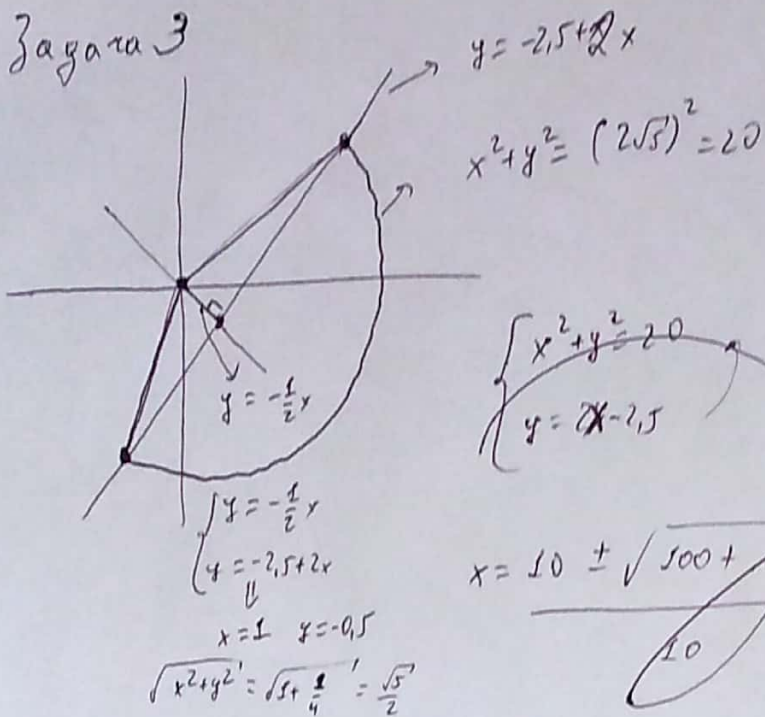 Задача 3
y = -2,5+2x
x² + y² = (2√5)² = 20
y = -½x
{ x² + y² = 20
y = 2x-2,5
{ y = -½x
y = -2,5+2x
⇓
x=1 y=-0,5
√(x²+y²) = √(1+¼) = √5/2
x = 10 ± √100 +
10